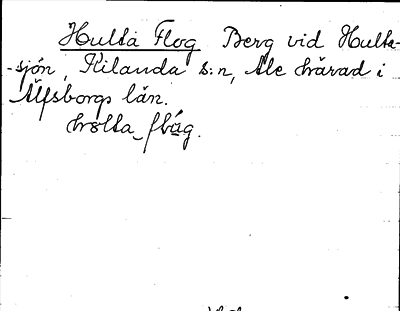 Hulta Flog Berg vid Hulta-
-sjön, Kilanda s:n, Ale härad i
Älfsborgs län.
hòlta_flåg.